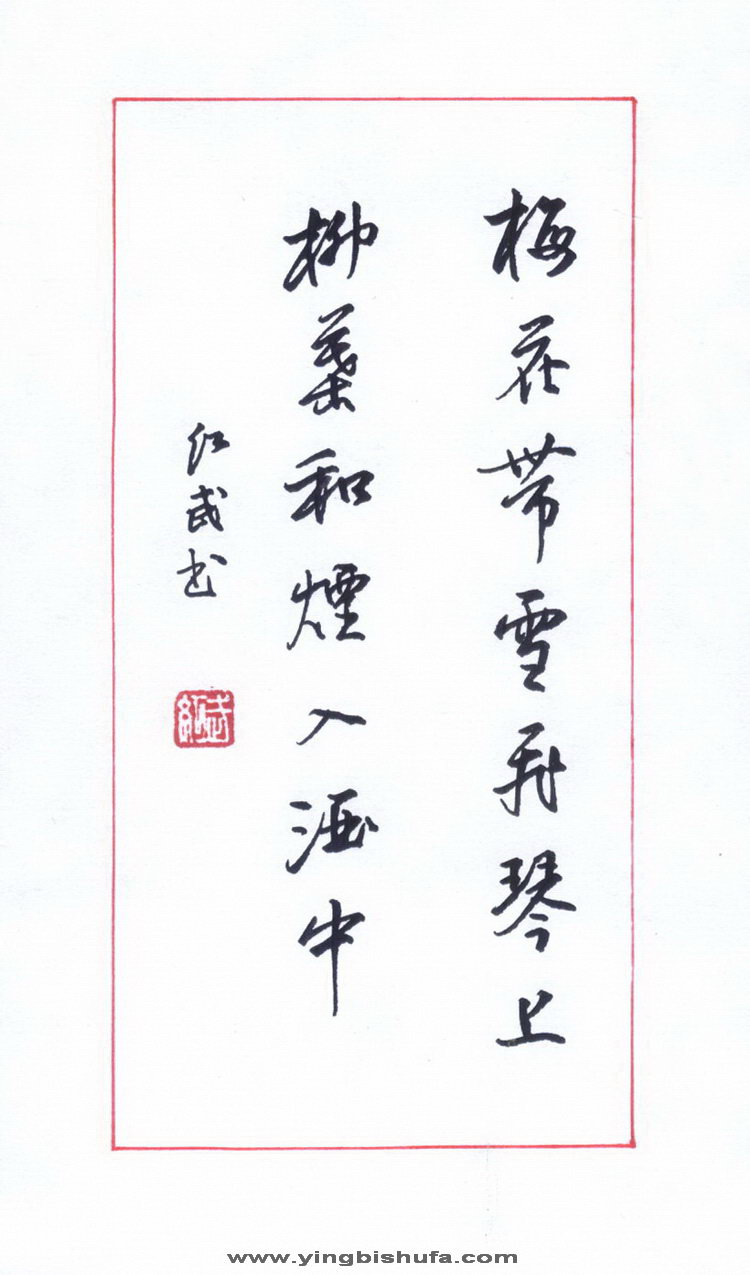 梅花带雪飛琴上
柳葉和煙入酒中
红武书
红武
www.yingbishufa.com